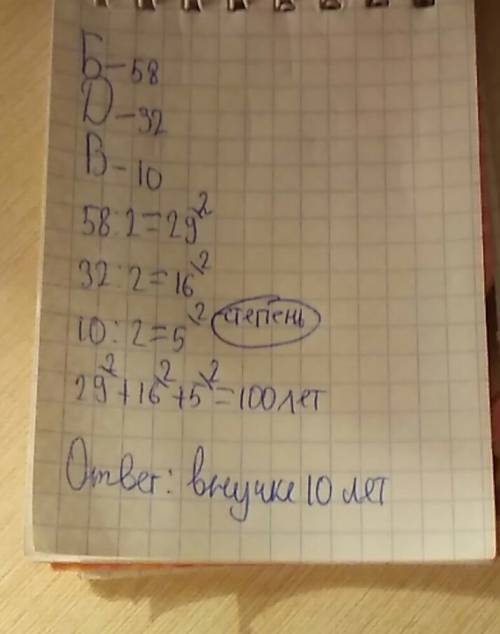 Б-58
D-32
В-10
58:2=29²
32:2=16²
10:2=5² степень
29²+16²+5²=100 лет
Ответ: внучке 10 лет